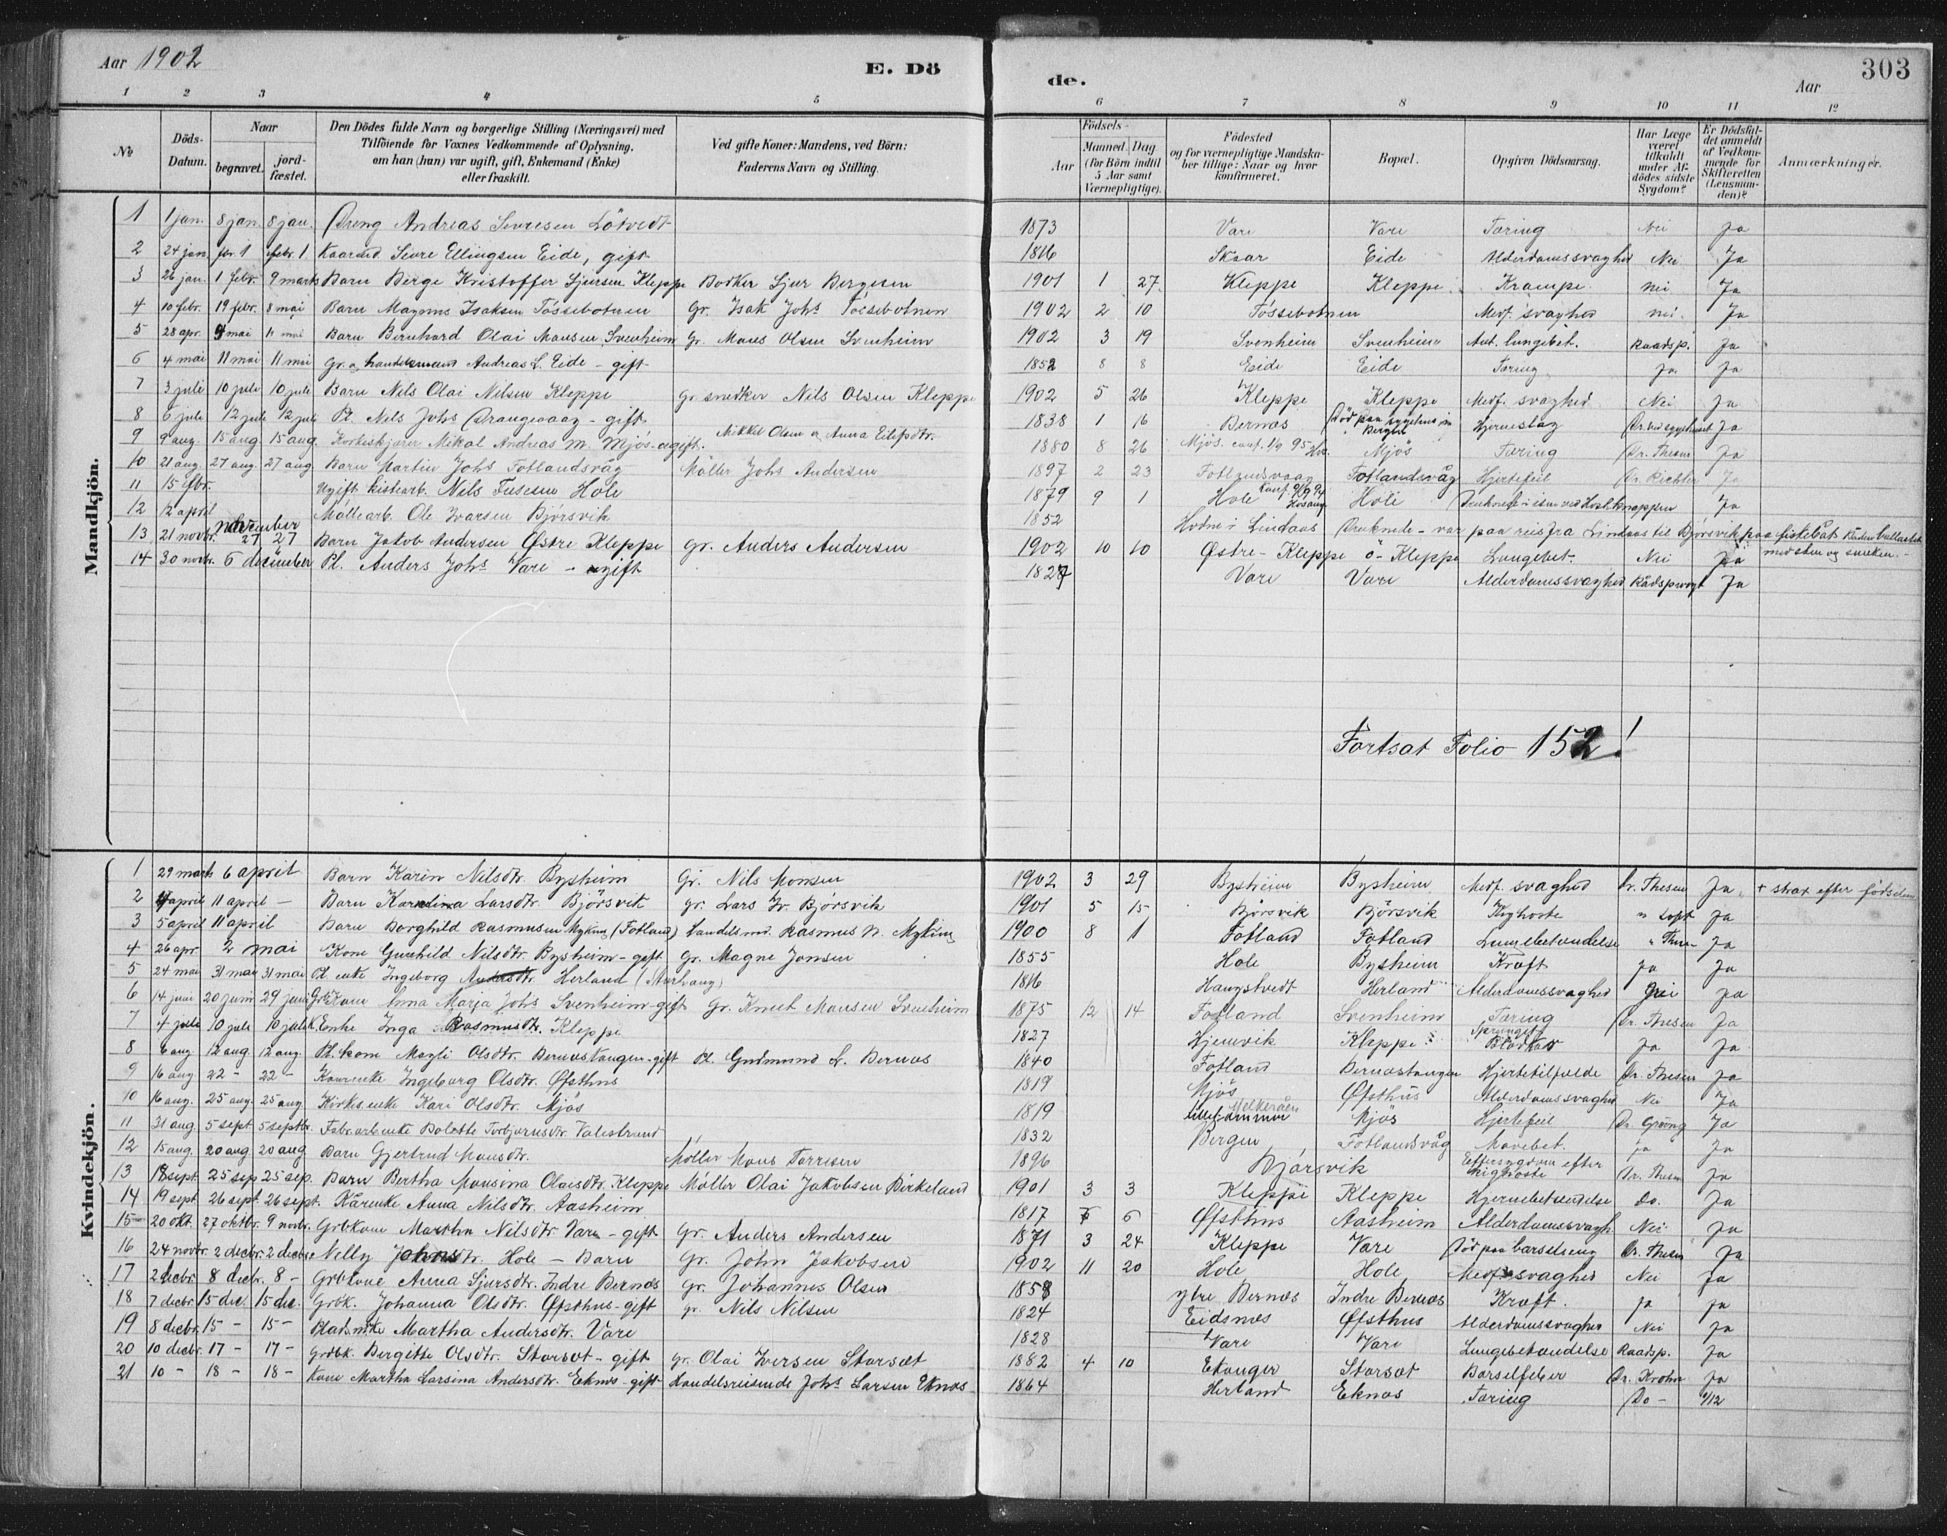 Aar 1902 E. Dö de. Aar 303
1 2 3 4 5 6 7 8 9 10 11 12
No Döds-Datum. Naar begravet. jordfæstet. Den Dödes fulde Navn og borgerlige Stilling (Næringsvei) med Tilföiende for Voxnes Vedkommende af Oplysning, om han (hun) var ugift, gift, Enkemand (Enke) eller fraskilt. Ved gifte Koner: Mandens, ved Börn: Faderens Navn og Stilling. Födsels- Aar Maaned. Dag (for Börn indtil 5 Aar samt Værnepligtige). Födested og for værnepligtige Mandskaber tillige: Naar og hvor konfirmeret. Bopæl. Opgiven Dödsaarsag. Har Læge været tilkaldt under Afdödes sidste Sygdom? Er Dödsfaldet anmeldt af Vedkommende for Skifteretten (Lensmanden)? Anmærkninger.
Mandkjön.
1 1 jan. 8 jan. 8 jan. Dreng Andreas Lötvedt 1873 Vare Vare Tæring Nei ja
2 24 jan. febr. 1 febr. 1 Kaarmd Ellingsen Eide, gift 1816 Skaar Eide Alderdomssvaghed Nei Ja
3 26 jan. 1 febr. 9 marts Barn Berge Kristoffer Sjursen Kleppe Bødker Sjur Bergesen 1901 1 27 Kleppe Kleppe Krampe. Nei Ja
4 10 febr. 19 febr. 8 mai Barn Magnus Isaksen Tössebotnen Gr. Isak Johs Tössebotnen 1902 2 10 Tössebotnen Medf. svaghed nei. Ja
5 28 apr. 9 mai 11 mai Barn Bernhard Olai Monsen Svenheim Gr. Mons Olsen Svenheim 1902 3 19 Svenheim Svenheim Aut. lungebet. Raadsp. Ja
6 4 mai 11 mai 11 mai Gr. og handelsmand Andreas L. Eide - gift 1852 8 8 Eide Eide Tæring ja ja
7 3 juli 10 juli 10 juli Barn Nils Olai Nilsen Kleppe gr snedker Nils Olsen Kleppe 1902 5 26 Kleppe Kleppe Medf. svaghed Nei Ja
8 6 juli 12 juli 12 juli Pl. Nils Johs Drangevaag - gift. 1838 1 16 Bernæs Død paa sygehus i Bergen Hjerneslag Ja
9 9 aug 15 aug 15 aug Mikal Andreas M. Mjös - ugift. Mikkel Olsen og Anna Eilifsdtr. 1880 8 26 Mjös. conf. 1/9 95 Hos. Mjös Tæring Dr. Thesen Ja
10 21 aug. 27 aug. 27 aug Barn Martin Johs Fotlandsvåg Møller Johs Andersen 1897 2 23 Fotlandsvaag Fotlandsvåg Hjertefeil Dr. Richter Ja
11 15 febr. Ugift kistearb. Nils Hole 1879 9 1 Hole Hosang Hole Ja
12 12 april Møllearb. Ole Ivarsen Bjørsvik 1852 Hodne i Lindaas Druknede - var paa reis fra Lindaas til Bjørsvik paa fiskebåt
13 21 novbr. november 27 27 Barn Jakob Andersen Østre Kleppe gr. Anders Andersen 1902 10 10 Østre-Kleppe Ö-Kleppe Lungebet. Nei Ja
14 30 novbr. 6 december Pl. Anders Johs Vare - ugift 1827 Vare Vare Alderdomssvaghed Rådspurgt Ja
Fortsat Folio 152!
Kvindekjön.
1 29 marts 6 april Barn Karin Nilsdtr. Bysheim Gr. Nils Monsen 1902 3 29 Bysheim Bysheim Medf. svaghed Dr. Thesen Ja + strax efter födselen
2 4 april 11 april - Barn Larsdtr. Bjørsvik gr. Lars Iv. Bjørsvik 1901 5 15 Bjørsvik Bjørsvik Kighoste Ja
3 5 april 11 april Barn Borghild Rasmusen Myking (Fotland) Handelsmd. Rasmus N. Myking 1900 8 1 Fotland Fotland Lungebetændelse Ja
4 26 apr. 2 mai Kone Gunhild Nilsdtr. Bysheim - gift Gr. Magne Jonsen 1855 Hole Bysheim Kræft ja Ja
5 24 mai 31 mai 31 mai Pl enke Ingeborg Andersdtr. Herland 1816 Haugstvedt Herland Alderdomssvaghed ja
6 14 juni 20 juni 29 juni Grbr. Kone Anna Marja Johs Svenheim - gift Gr. Knut Monsen Svenheim 1875 12 14 Fotland Svenheim Tæring Dr. Thesen Ja
7 4 juli 10 juli 10 juli K. Enke Inga Rasmusdtr. Kleppe 1827 Hjemvik Kleppe Ja Ja
8 6 aug 12 aug. 12 aug. Pl. kone Magli Olsdtr. Bernæstangen - gift Pl. Gudmund L. Bernæs 1840 Fotland Bernæstangen Hjertetilfælde Dr. Thesen Ja
9 16 aug 22 - 22 - Ingeborg Olsdtr. Øfsthus 1819 Mjös Øfsthus Alderdomssvaghed Nei Ja
10 16 aug. 25 aug. 25 aug. Kirkesenke Kari Olsdtr. Mjös 1819 Mjös Hjertefeil Dr Ja
11 31 aug. 5 sept 5 septbr. Fabr. arb. enke Bolette Torbjørnsdtr. Valestrand 1832 Bergen Fotlandsvåg Mavebet. ja Ja
12 15 aug. 20 aug 20 aug Barn Gjertrud Monsdtr. Møller Mons 1896 Bjørsvik efter kighoste Dr. Thesen Ja
13 18 sept. 25 sep 25 sep. Barn Bertha Monsina Olaisdtr. Kleppe Møller Olai Jakobsen Birkeland 1901 3 3 Kleppe Kleppe Hjernebetændelse do. Ja
14 19 sept 26 sept 26 sept. Kårenke Anna Nilsdtr. Aasheim 1817 6 Øfsthus Aasheim Alderdomssvagh. Nei Ja
15 20 okt. 27 oktbr. 9 novbr. Grbkone Martha Nilsdtr. Vare - gift Gr. Anders Andersen 1871 3 24 Kleppe Vare Död paa barselseng Dr. Thesen Ja
16 24 novbr. 2 decbr. 2 decbr. Nelly Johnsdtr. Hole - Barn Gr. John Jakobsen 1902 11 20 Hole Hole Medf. svaghed Nei Ja
17 2 decbr. 8 decbr. 8 - Grbkone Anna Sjursdtr. Indre Bernæs Gr. Johannes Olsen 1858 ytre Bernæs Indre Bernæs Kræft. ja ja
18 7 decbr. 15 dec. 15 dec. Grbk. Johanna Olsdtr. Øfsthus - gift gr. Nils Nilsen 1824 Eidsnes Øfsthus Alderdomssvaghed Nei Ja
19 8 decbr. 15 - 15 - Martha Andersdtr. Vare 1828 Vare Vare Lungebetændelse Raadsp. Ja
20 10 decbr. 17 - 17 - Grdbk. Bergitte Olsdtr. Storsæt - gift gr. Olai Iversen Storsæt 1882 4 10 Eikanger Storsæt Barselfeber Dr. Krohn Ja
21 10 - 18 - 18 - Kone Martha Larsina Andersdtr. Eknæs - gift Handelsreisende Johs Larsen Eknæs 1864 Herland Eknæs Tæring Do - 9/12